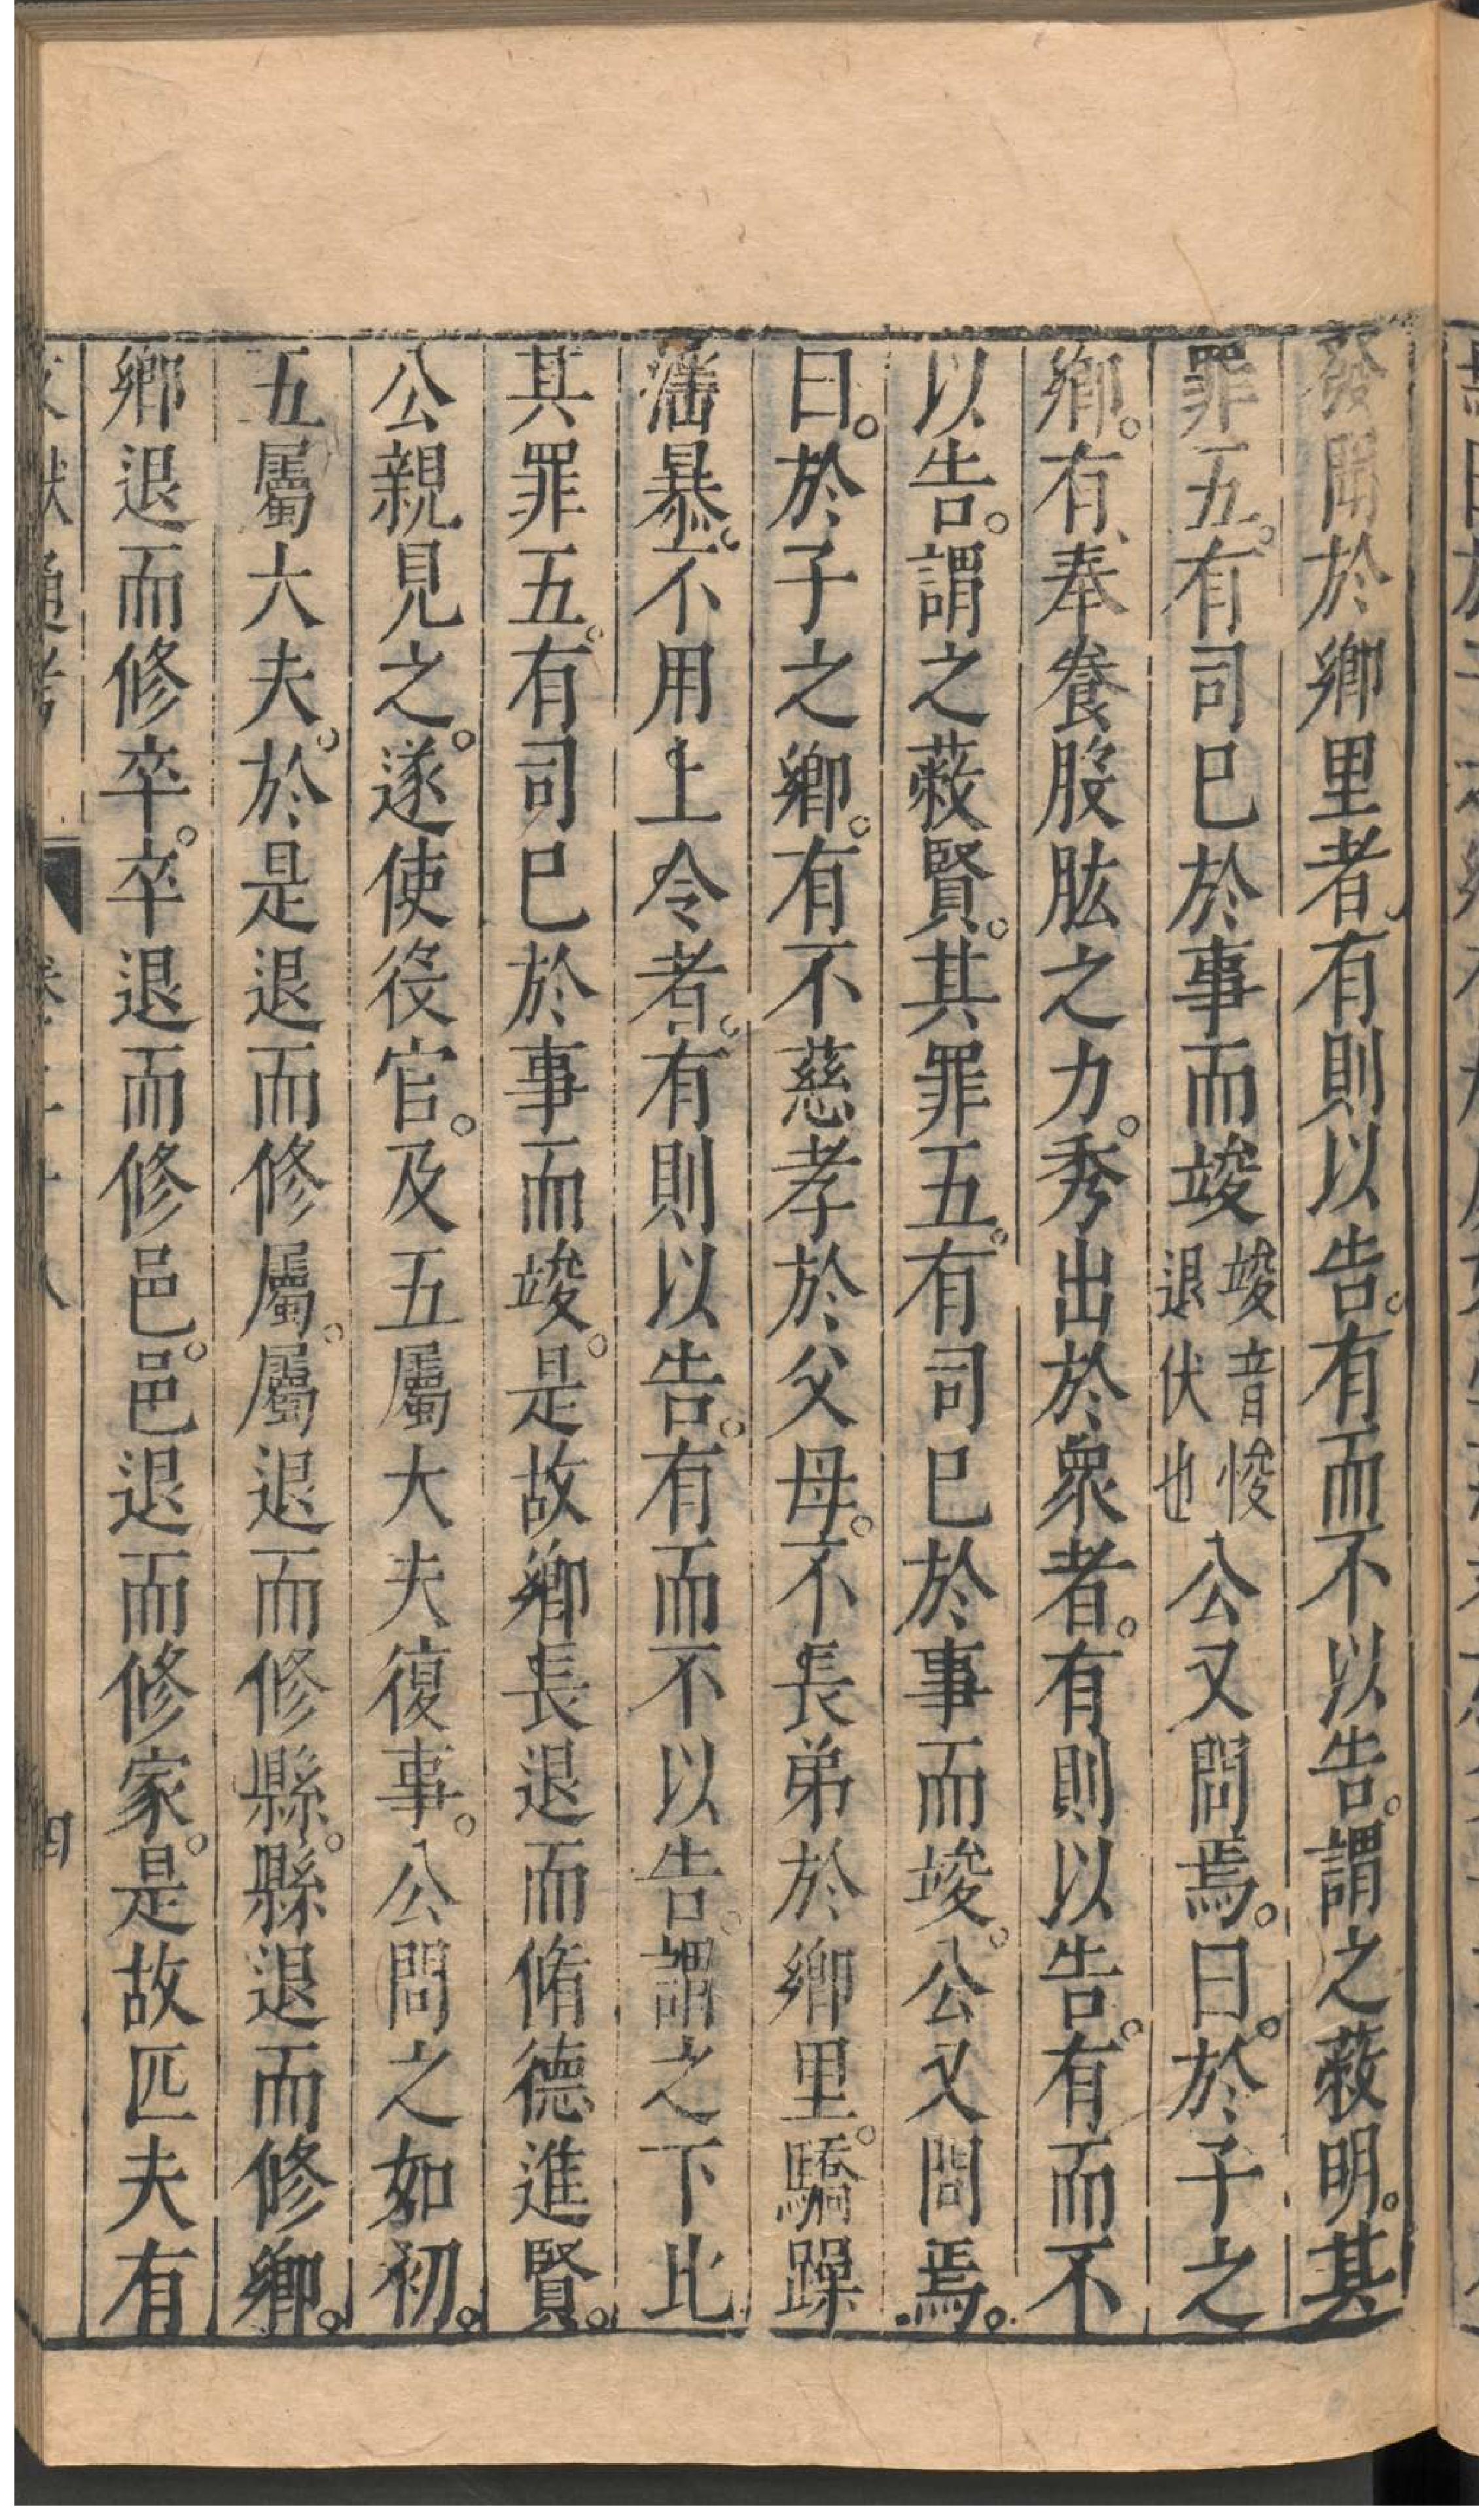 發聞於鄉里者有則以告。有而不以告。謂之蔽明。其
罪五。有司已於事而竣竣音悛退伏也公又問焉。曰。於子之
鄉。有奉養股肱之力。秀出於衆者。有則以告。有而不
以告。謂之蔽賢。其罪五。有司已於事而竣。公又問焉。
曰。於子之鄉。有不慈孝於父母。不長弟於鄉里。驕躁
滛暴。不用上令者。有則以告。有而不以告。謂之下比
其罪五。有司已於事而竣。是故鄉長退而脩德進賢。
公親見之。遂使役官。及五屬大夫復事。公問之如初。
五屬大夫。於是退而修屬。屬退而修縣。縣退而修鄉。
鄉退而修卒。卒退而修邑。邑退而修家。是故匹夫有